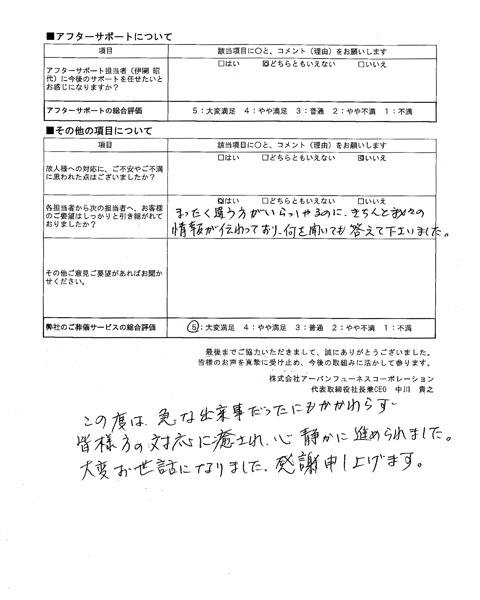 ■アフターサポートについて
項目 該当項目に○と、コメント(理由)をお願いします
アフターサポート担当者(伊関 昭代)に今後のサポートを任せたいとお感じになりますか?
□はい ☒どちらともいえない □いいえ
アフターサポートの総合評価 5:大変満足 4:やや満足 3:普通 2:やや不満 1:不満
■その他の項目について
項目 該当項目に○と、コメント(理由)をお願いします
□はい □どちらともいえない ☒いいえ
故人様への対応に、ご不安やご不満に思われた点はございましたか?
☒はい □どちらともいえない □いいえ
各担当者から次の担当者へ、お客様のご要望はしっかりと引き継がれておりましたか?
まったく違う方がいらっしゃるのに、きちんと我々の
情報が伝わっており、何を聞いても答えて下さいました。
その他ご意見ご要望があればお聞かせください。
弊社のご葬儀サービスの総合評価 ⑤:大変満足 4:やや満足 3:普通 2:やや不満 1:不満
最後までご協力いただきまして、誠にありがとうございました。
皆様のお声を真摯に受け止め、今後の取組みに活かして参ります。
株式会社アーバンフューネスコーポレーション
代表取締役社長兼CEO 中川 貴之
この度は、急な出来事だったにもかかわらず
皆様方の対応に癒され、心静かに進められました。
大変お世話になりました。感謝申し上げます。